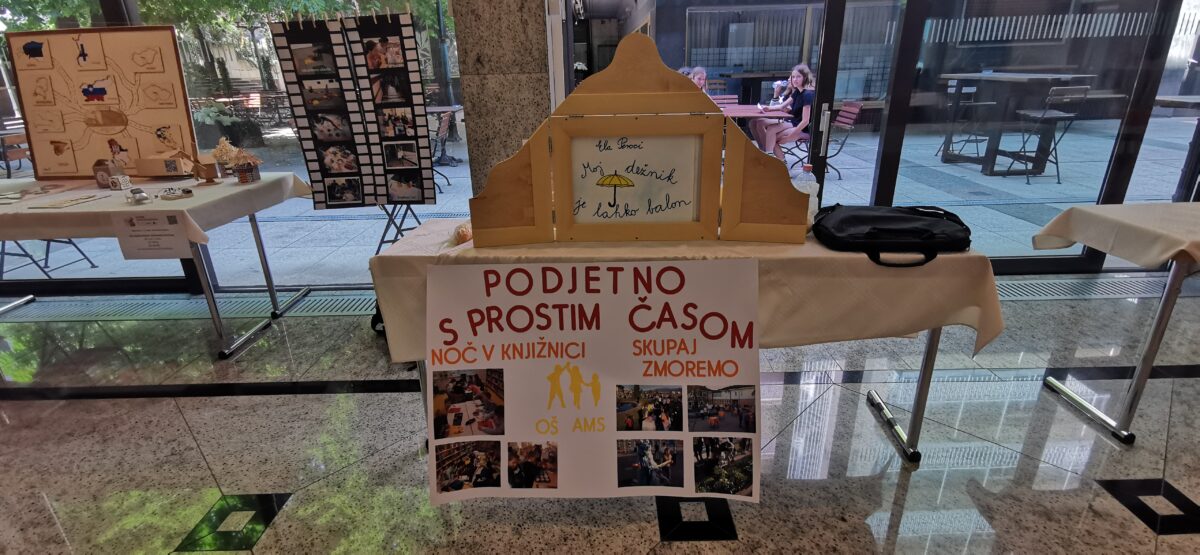 Ela Peroci
Moj dežnik
je lahko balon
PODJETNO
S PROSTIM ČASOM
NOČ V KNJIŽNICI
SKUPAJ
ZMOREMO
OŠ AMS